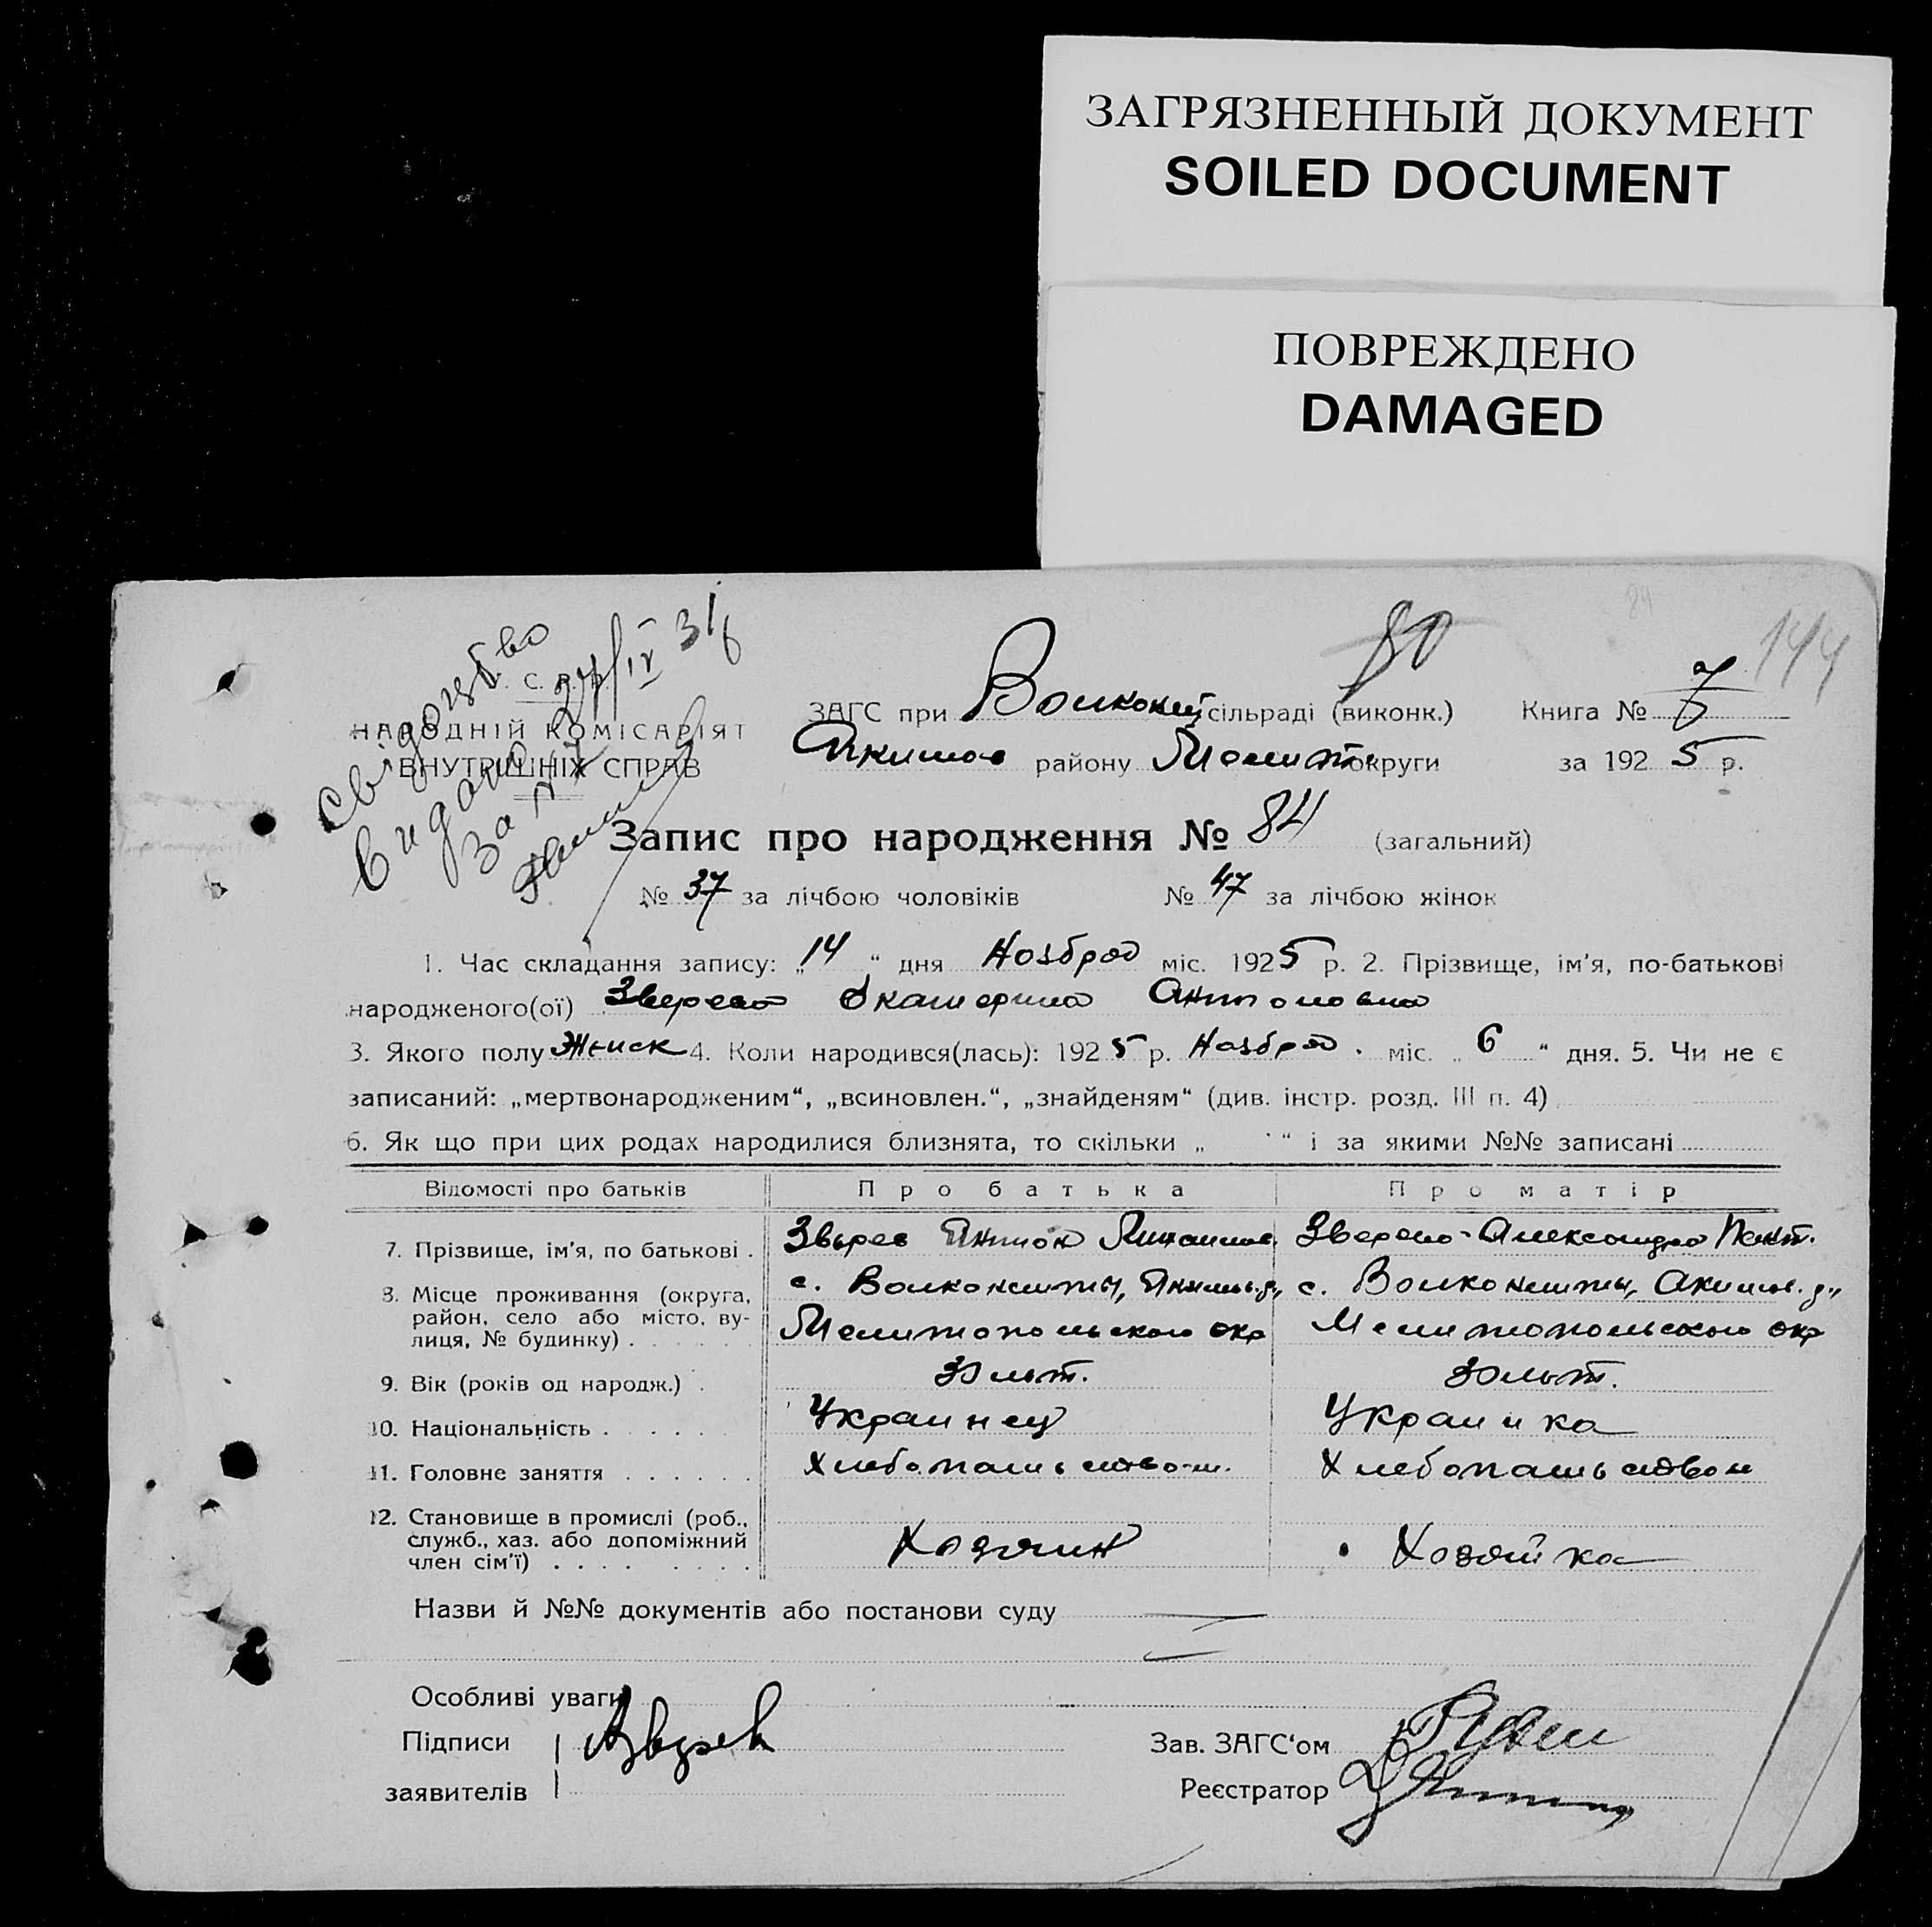 ЗАГРЯЗНЕННЫЙ ДОКУМЕНТ
SOILED DOCUMENT
ПОВРЕЖДЕНО
DAMAGED
80
84
144
Свідоцтво
видано 27/IV 31
за №
НАРОДНІЙ КОМІСАРІЯТ
ВНУТРІШНІХ СПРАВ
ЗАГС при сільраді (виконк.) Книга № 7
Акимов району Мелит. округи за 1925 р.
Запис про народження № 84 (загальний)
№ 37 за лічбою чоловіків № 47 за лічбою жінок
1. Час складання запису: „14“ дня Ноября міс. 1925 р. 2. Прізвище, ім'я, по-батькові
народженого(ої) Зверева Екатерина Антоновна
3. Якого полу Женск 4. Коли народився(лась): 1925 р. Ноября міс. „6“ дня. 5. Чи не є
записаний: „мертвонародженим“, „всиновлен.“, „знайденям“ (див. інстр. розд. III п. 4)
6. Як що при цих родах народилися близнята, то скільки „ “ і за якими №№ записані
Відомості про батьків Про батька Про матір
7. Прізвище, ім'я, по батькові . Зверев Антон Зверева Александра
8. Місце проживання (округа, район, село або місто, вулиця, № будинку) . с. Акимов. р., Мелитопольского окр с. Акимов. р., Мелитопольского окр
9. Вік (років од народж.) . 30 лет. 30 лет.
10. Національність . Украинец Украинка
11. Головне заняття . Хлебопашеством. Хлебопашеством
12. Становище в промислі (роб., служб., хаз. або допоміжний член сім'ї) . Хозяин Хозяйка
Назви й №№ документів або постанови суду
Особливі уваги
Підписи Азверев Зав. ЗАГС'ом
заявителів Реєстратор